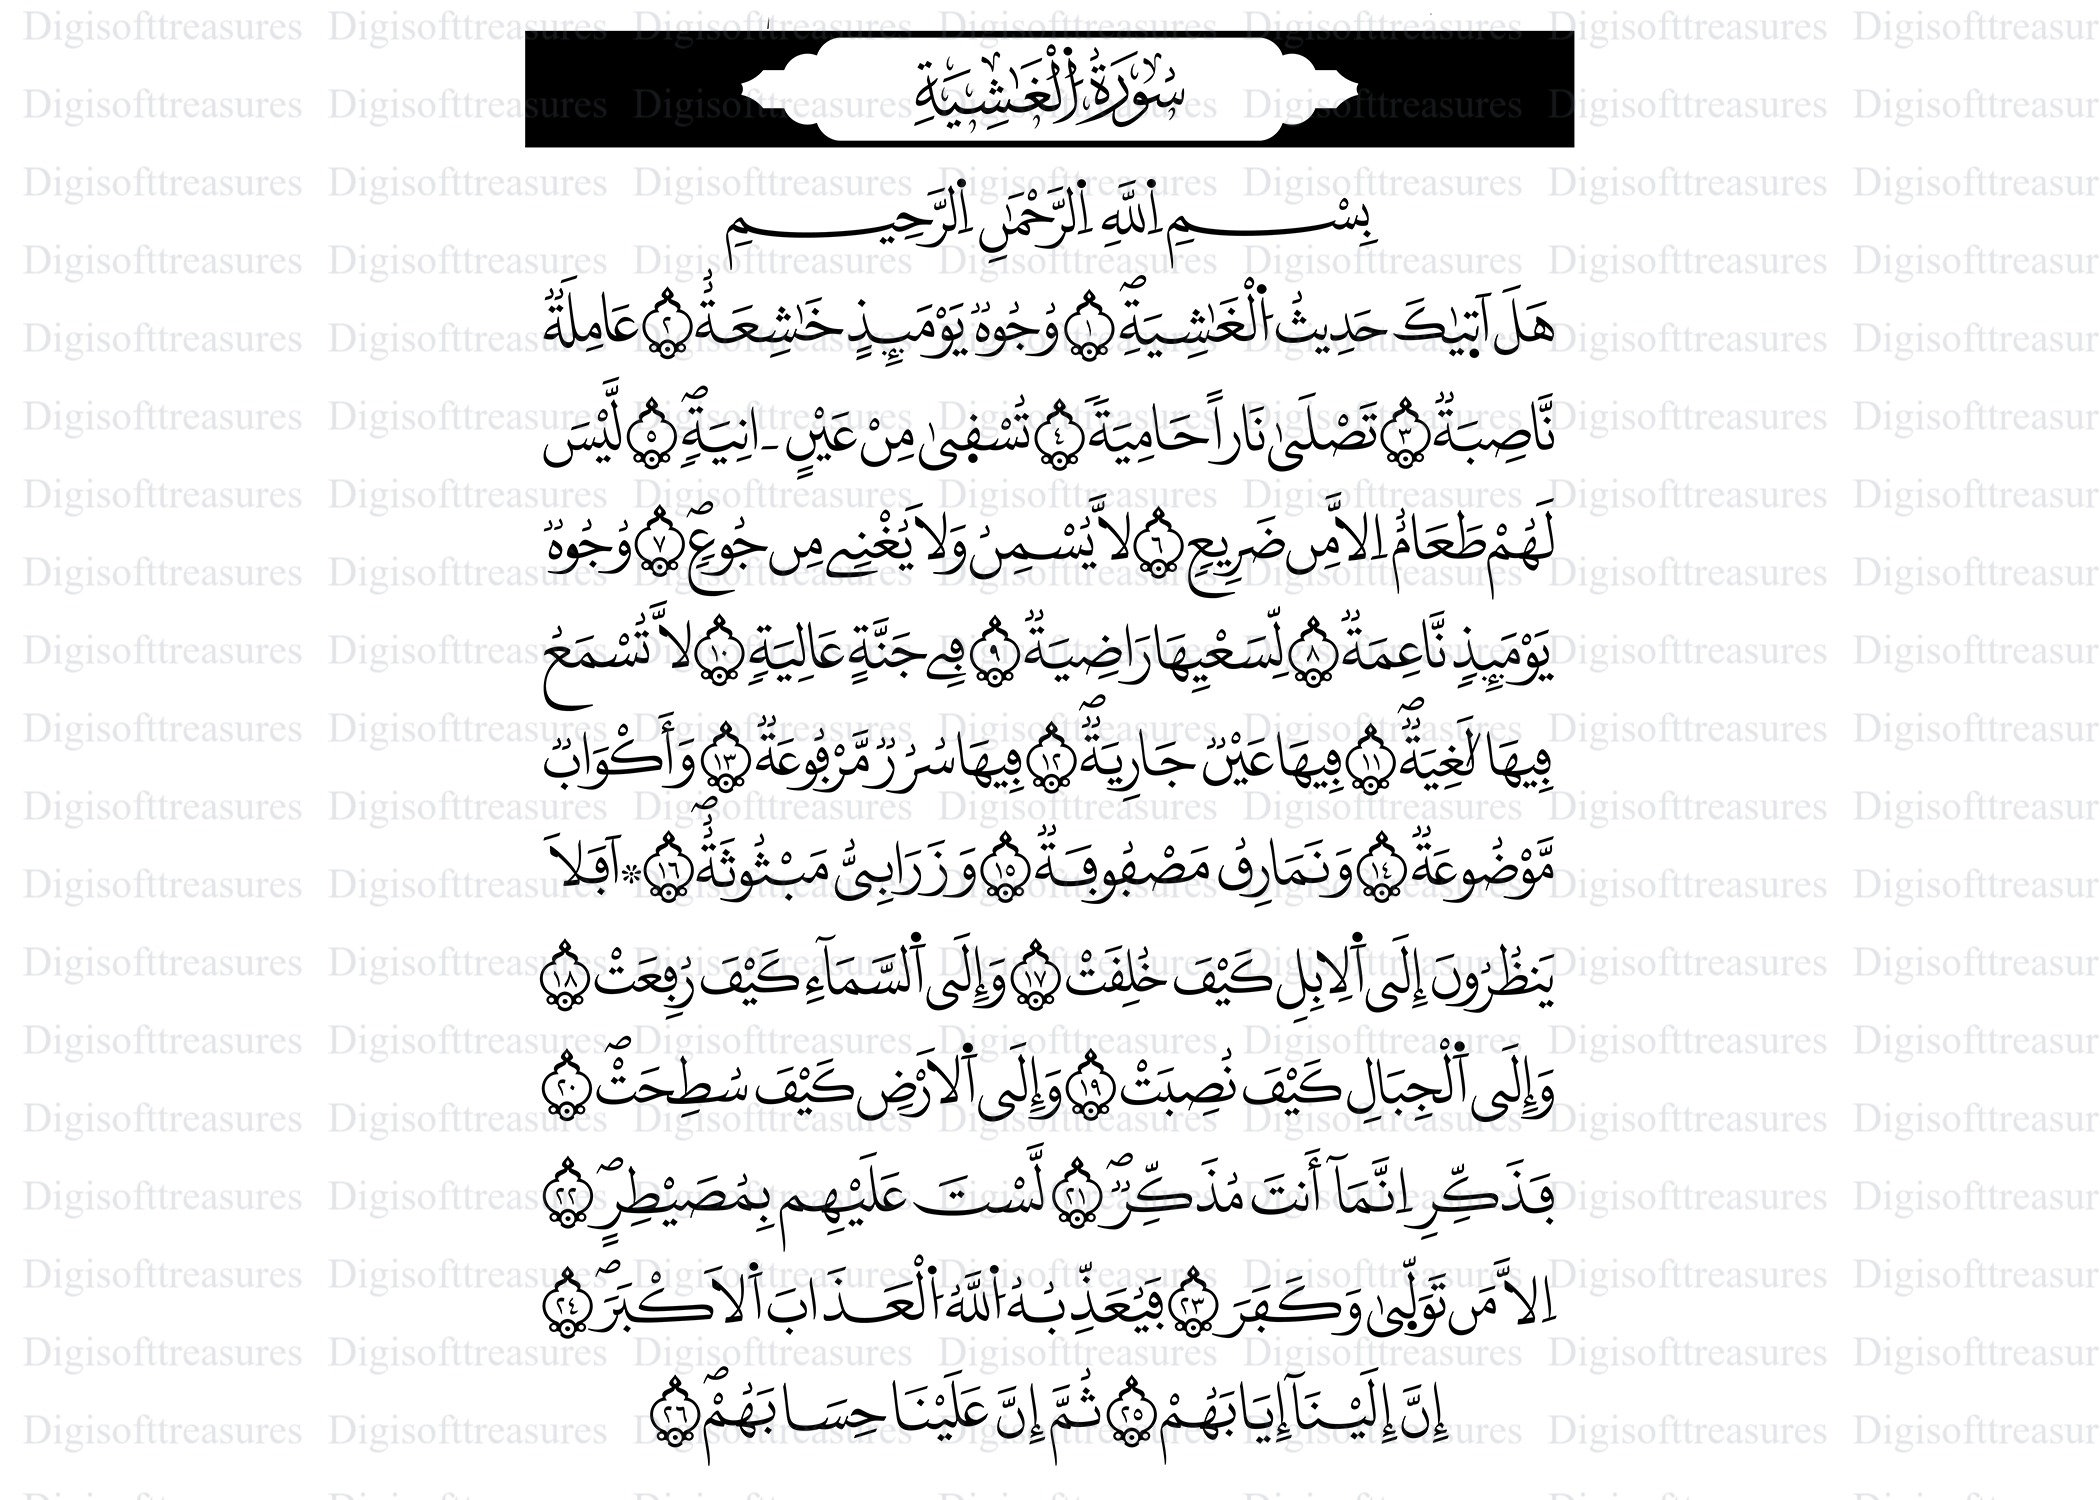 سُورَةُ اُ۬لْغَٰشِيَةِ
بِسْمِ اِ۬للَّهِ اِ۬لرَّحْمَٰنِ اِ۬لرَّحِيمِ
هَلَ اَتٜيٰكَ حَدِيثُ اُ۬لْغَٰشِيَةِۖ ١ وُجُوهٞ يَوْمَئِذٍ خَٰشِعَةٌ ٢ عَامِلَةٞ
نَّاصِبَةٞ ٣ تَصْلَىٰ نَاراً حَامِيَةٗ ٤ تُسْڢ۪ىٰ مِنْ عَيْنٍ ـ انِيَةٖۖ ٥ لَّيْسَ
لَهُمْ طَعَامٌ اِلَّا مِن ضَرِيعٖ ٦ لَّا يُسْمِنُ وَلَا يُغْنِے مِن جُوعٖۖ ٧ وُجُوهٞ
يَوْمَئِذٖ نَّاعِمَةٞ ٨ لِّسَعْيِهَا رَاضِيَةٞ ٩ ڢِے جَنَّةٍ عَالِيَةٖ ١٠ لَّا تُسْمَعُ
ڢِيهَا لَٰغِيَةٞۖ ١١ ڢِيهَا عَيْنٞ جَارِيَةٞۖ ١٢ ڢِيهَا سُرُرٞ مَّرْڢُوعَةٞ ١٣ وَأَكْوَابٞ
مَّوْضُوعَةٞ ١٤ وَنَمَارِقُ مَصْڢُوڢَةٞ ١٥ وَزَرَابِىُّ مَبْثُوثَةٌۖ ١٦ ۞ اَڢَلَا
يَنظُرُونَ إِلَى اَ۬لِابِلِ كَيْفَ خُلِڧَتْ ١٧ وَإِلَى اَ۬لسَّمَآءِ كَيْفَ رُڢِعَتْ ١٨
وَإِلَى اَ۬لْجِبَالِ كَيْفَ نُصِبَتْ ١٩ وَإِلَى اَ۬لَارْضِ كَيْفَ سُطِحَتْۖ ٢٠
ڢَذَكِّرِ اِنَّمَآ أَنتَ مُذَكِّرٞۖ ٢١ لَّسْتَ عَلَيْهِم بِمُصَيْطِرٍۖ ٢٢
اِلَّا مَن تَوَلّ۪ىٰ وَكَڢَرَ ٢٣ ڢَيُعَذِّبُهُ اُ۬للَّهُ اُ۬لْعَذَابَ اَ۬لَاكْبَرَۖ ٢٤
إِنَّ إِلَيْنَآ إِيَابَهُمْ ٢٥ ثُمَّ إِنَّ عَلَيْنَا حِسَابَهُمْۖ ٢٦
Digisofttreasures